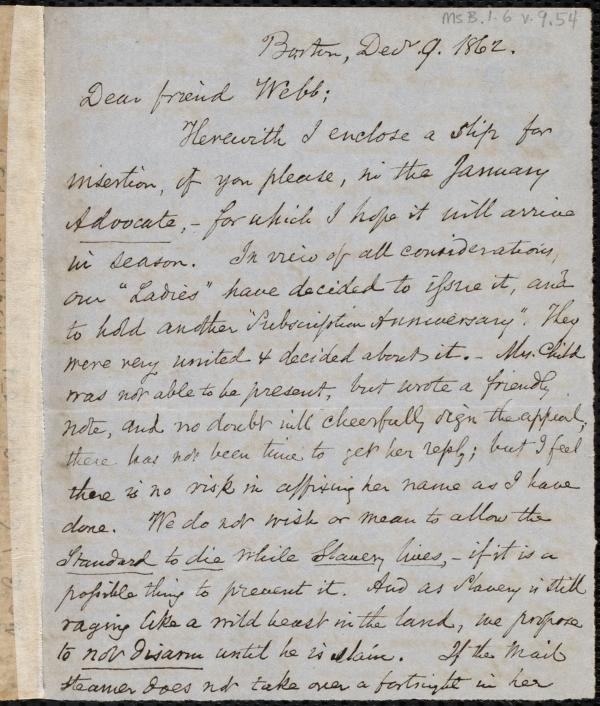 Ms B. 1. 6 v. 9. 54
Boston, Decr. 9. 1862.
Dear friend Webb;
Herewith I enclose a slip for
insertion, if you please, in the January
Advocate, - for which I hope it will arrive
in season. In view of all considerations,
our "Ladies" have decided to issue it, and
to hold another "Subscription Anniversary". They
were very united & decided about it. - Mrs. Child
was not able to be present, but wrote a friendly
note, and no doubt will cheerfully sign the appeal;
there has not been time to get her reply; but I feel
there is no risk in affixing her name as I have
done. We do not wish or mean to allow the
Standard to die while Slavery lives, - if it is a
possible thing to prevent it. And as Slavery is still
raging like a wild beast in the land, we propose
to not disarm until he is slain. If the Mail
steamer does not take over a fortnight in her